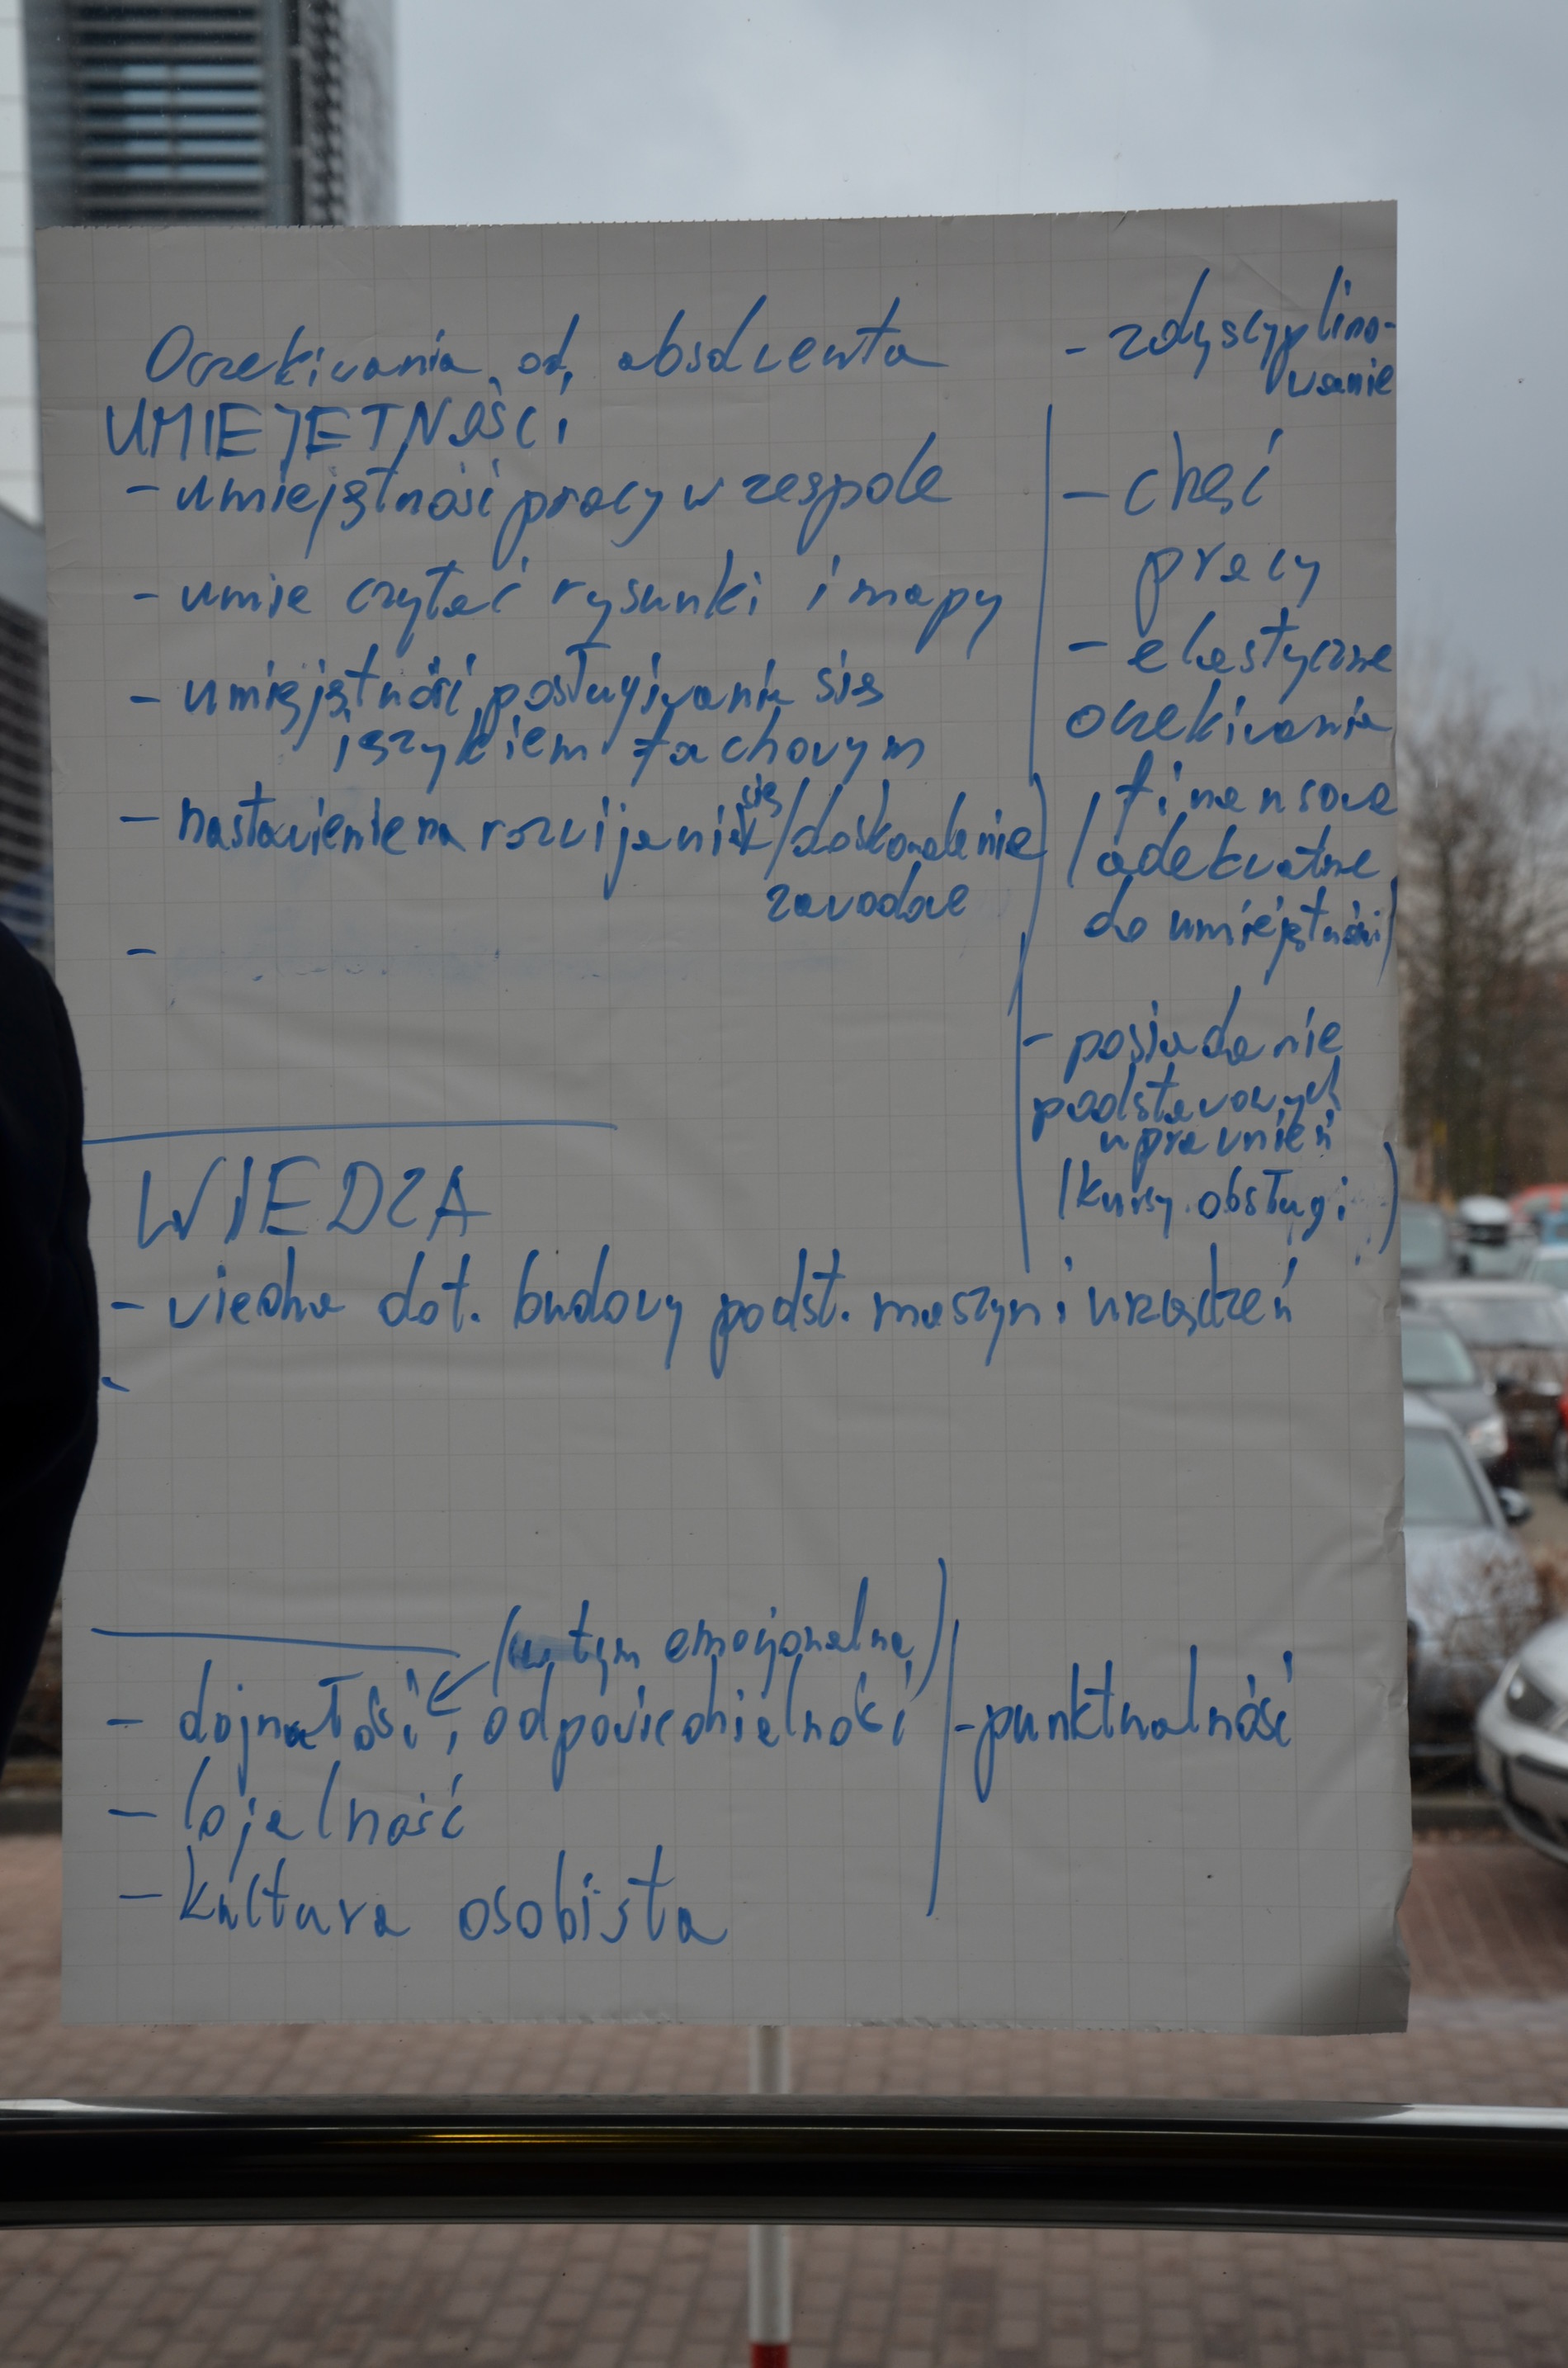 Oczekiwania od absolwenta
UMIEJĘTNOŚCI
- umiejętność pracy w zespole
- umie czytać rysunki i mapy
- umiejętność posługiwania się
językiem fachowym
- nastawienie na rozwijanie się/doskonalenie
zawodowe
-
- zdyscyplino-
wanie
- chęć
pracy
- elastyczne
oczekiwania
finansowe
(adekwatne
do umiejętności)
- posiadanie
podstawowych
uprawnień
(kursy obsługi)
WIEDZA
- wiedza dot. budowy podst. maszyn i urządzeń
-
(w tym emocjonalna)
- dojrzałość, odpowiedzialność
- lojalność
- kultura osobista
- punktualność